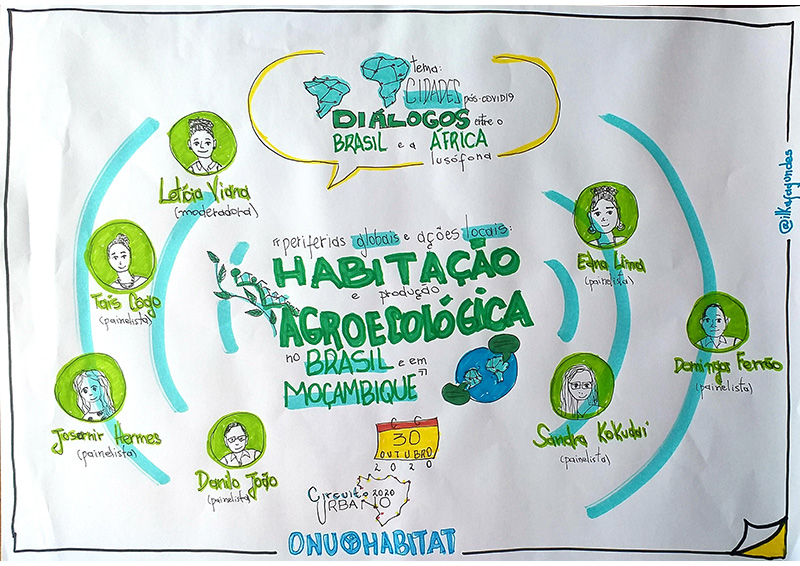 tema:
CIDADES pós-COVID19
DIÁLOGOS entre o
BRASIL e a ÁFRICA
lusófona
Letícia Viana
(moderadora)
Taís Cógo
(painelista)
Josemir Hermes
(painelista)
Danilo João
(painelista)
"periferias globais e ações locais:
HABITAÇÃO
e produção
AGROECOLÓGICA
no BRASIL e em
MOÇAMBIQUE"
Edna Lima
(painelista)
Domingos Fernão
(painelista)
Sandra Kokudai
(painelista)
30
OUTUBRO
2020
Circuito 2020
URBANO
ONU HABITAT
@ilkafagundes